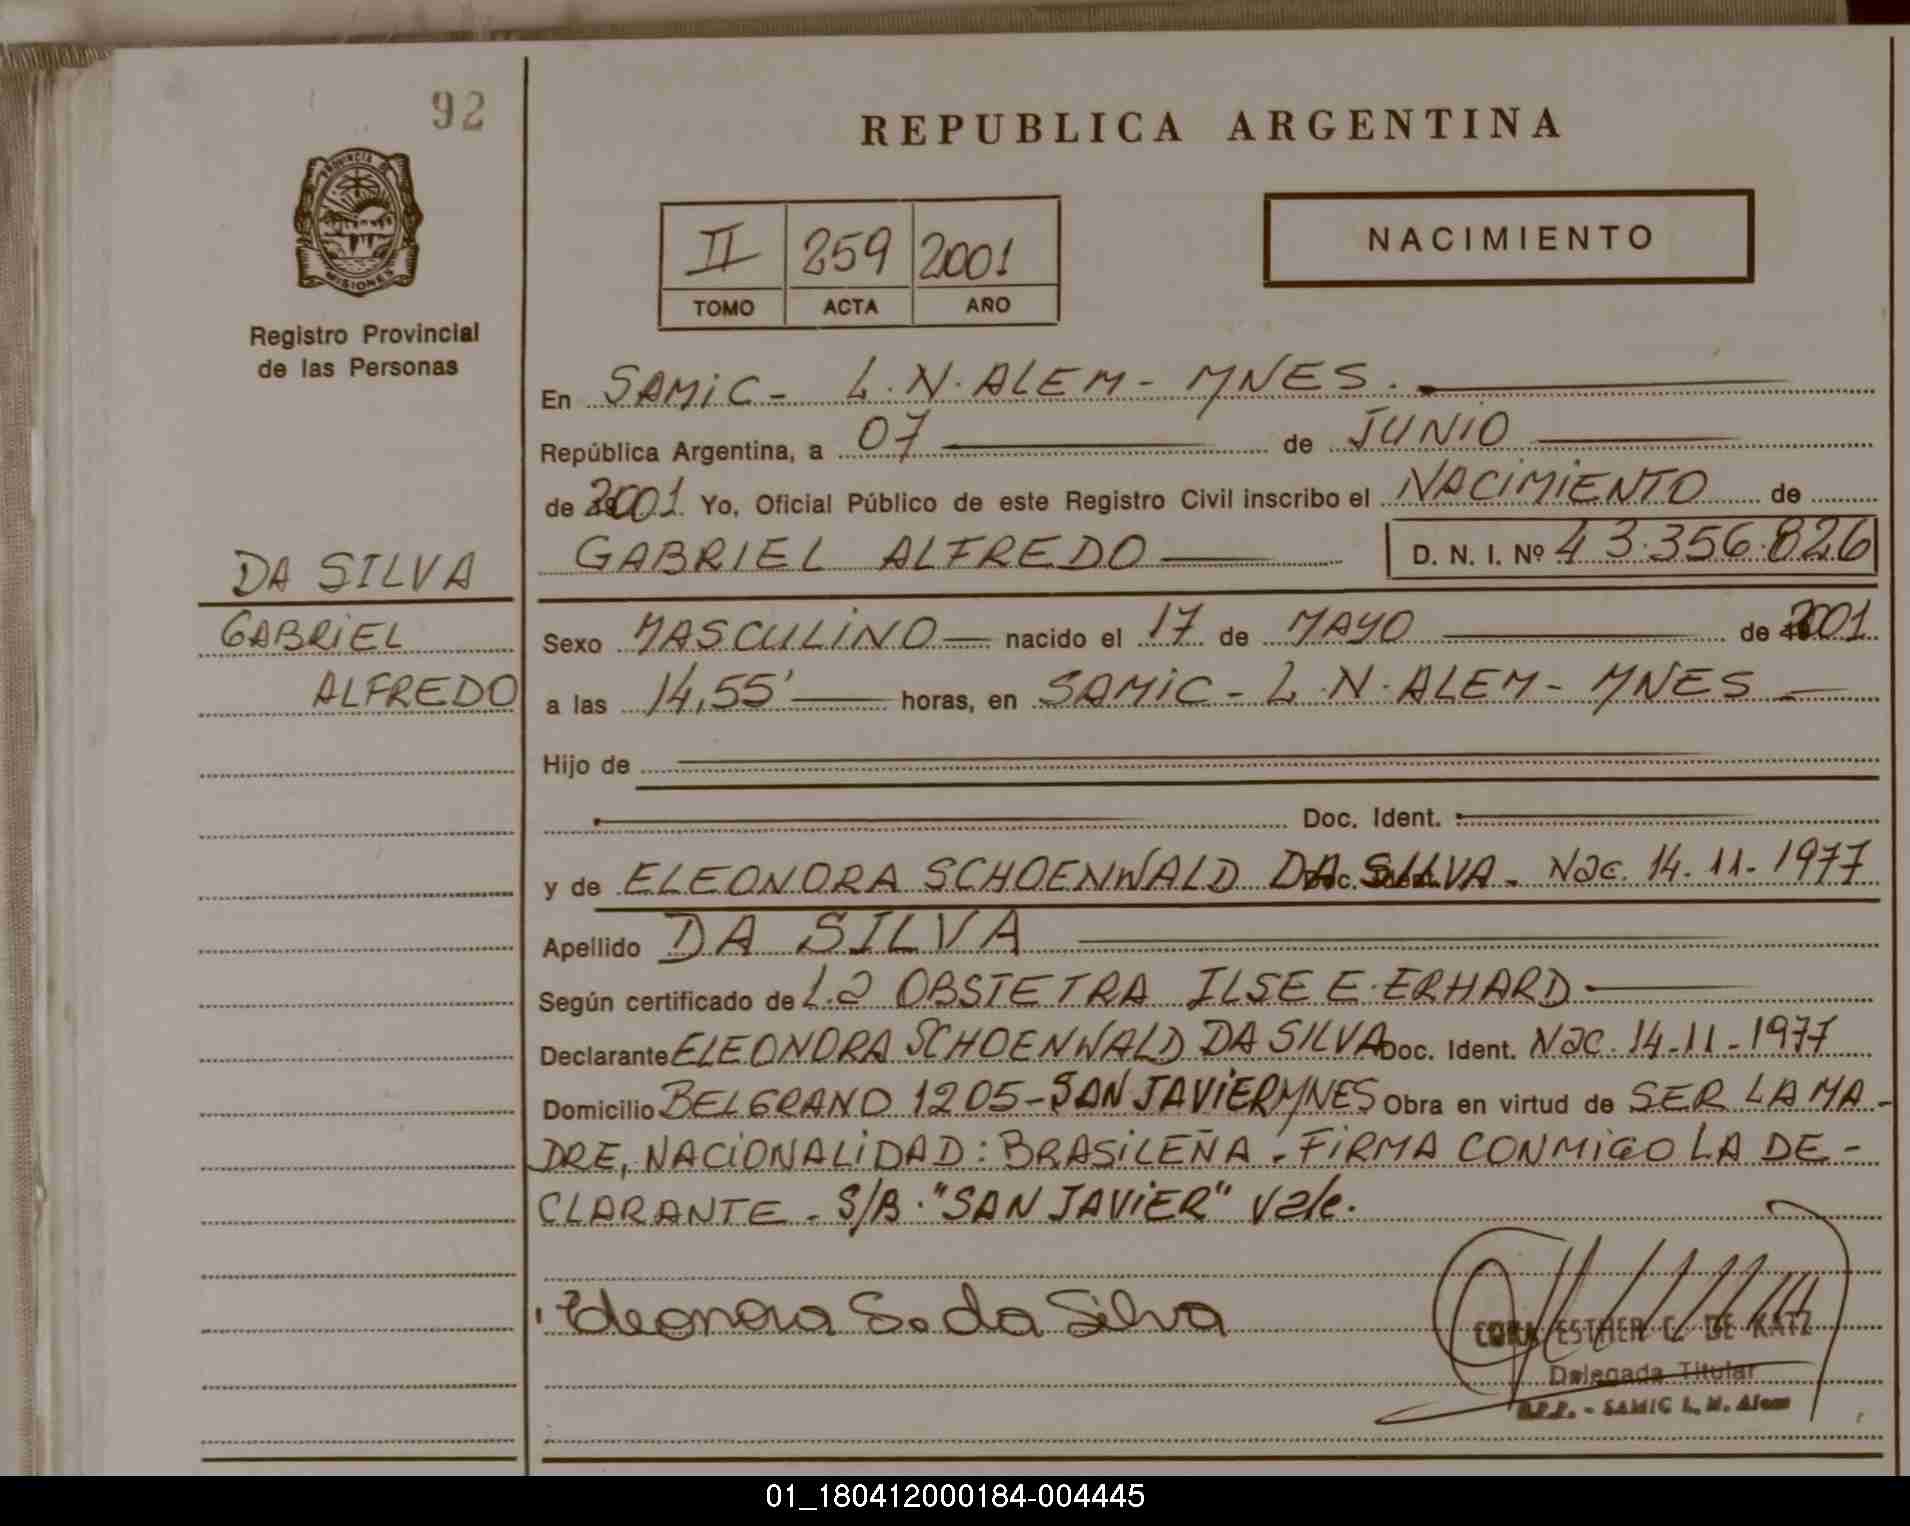 92
PROVINCIA DE
MISIONES
Registro Provincial
de las Personas
DA SILVA
GABRIEL
ALFREDO
REPUBLICA ARGENTINA
II 259 2001
TOMO ACTA AÑO
NACIMIENTO
En SAMIC - L.N. ALEM - MNES.
República Argentina, a 07 de JUNIO
de 2001 Yo, Oficial Público de este Registro Civil inscribo el NACIMIENTO de
GABRIEL ALFREDO D. N. I. Nº 43.356.826
Sexo MASCULINO nacido el 17 de MAYO de 2001
a las 14,55' horas, en SAMIC - L.N. ALEM - MNES
Hijo de
Doc. Ident.
y de ELEONORA SCHOENWALD DA SILVA - Nac. 14-11-1977
Apellido DA SILVA
Según certificado de La OBSTETRA ILSE E. ERHARD
Declarante ELEONORA SCHOENWALD DA SILVA Doc. Ident. Nac. 14-11-1977
Domicilio BELGRANO 1205 - SAN JAVIER MNES Obra en virtud de SER LA MA-
DRE, NACIONALIDAD: BRASILEÑA. FIRMA CONMIGO LA DE-
CLARANTE. S/B. "SAN JAVIER" Vale.
Eleonora S. da Silva
ESTHER C. DE KATZ
Delegada Titular
R.P.P. - SAMIC L. N. Alem
01_180412000184-004445